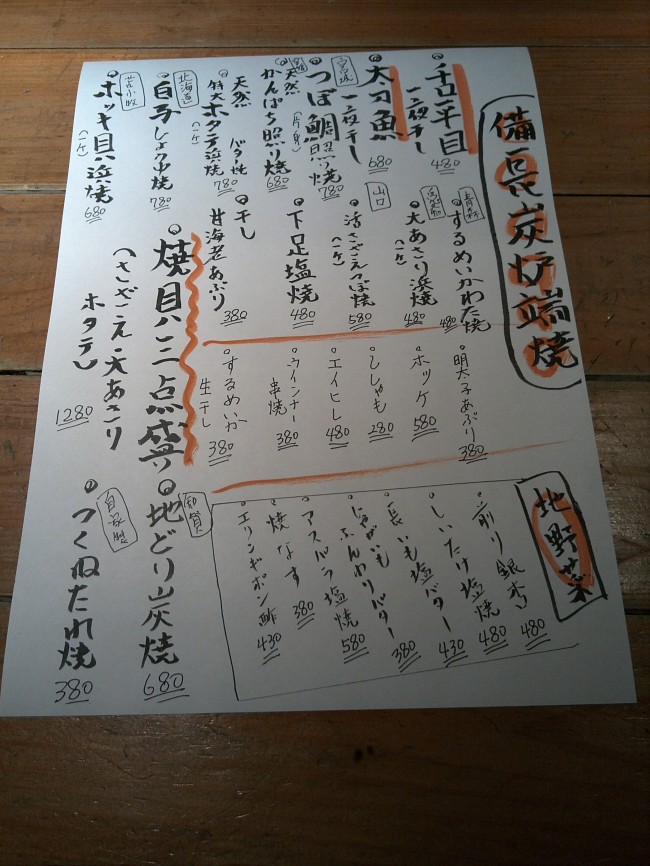 備長炭炉端焼
舌平目
一夜干し
480
太刀魚
一夜干し
680
つぼ鯛照焼
780
天然
かんぱち照り焼
680
天然
特大ホタテ浜焼
バタ焼
780
北海道
白子しょうゆ焼
780
苫小牧
ホッキ貝浜焼
(一ケ)
680
青森
するめいかわた焼
480
愛知
大あさり浜焼
(一ケ)
480
山口
活さざえつぼ焼
(一ケ)
580
下足塩焼
480
干し
甘海老あぶり
380
焼貝三点盛り
(さざえ・大あさり
ホタテ)
1280
明太子あぶり
380
ホッケ
580
ししゃも
280
エイヒレ
480
ウインナー
串焼
380
するめいか
生干し
380
地野菜
煎り銀杏
480
しいたけ塩焼
480
長いも塩バター
430
じゃがいも
ふんわりバター
380
アスパラ塩焼
580
焼なす
380
エリンギポン酢
430
地どり炭焼
680
自家製
つくねたれ焼
380